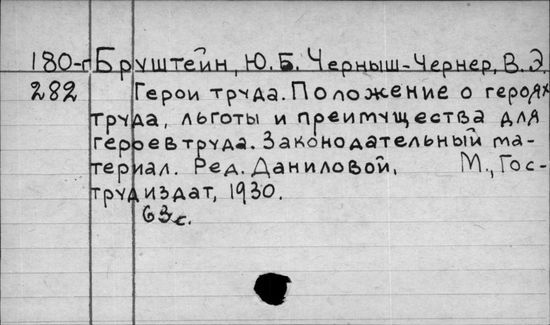 180-г Бруштейн, Ю.Б. Черныш-Чернер, В.Э.
282 Герои труда. Положение о героях
труда, льготы и преимущества для
героев труда. Законодательный ма-
териал. Ред. Даниловой. М., Гос-
трудиздат, 1930.
63 с.